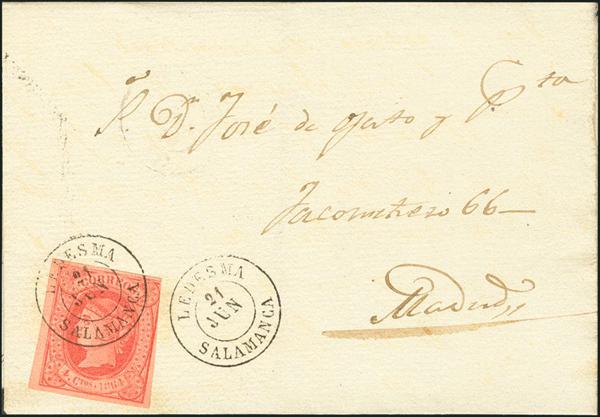 Sr. Dn. José de y Pta
Jacometrezo 66
Madrid
LEDESMA
21
JUN
SALAMANCA
CORREOS
4 CTOS. 1864
LEDESMA
21
JUN
SALAMANCA